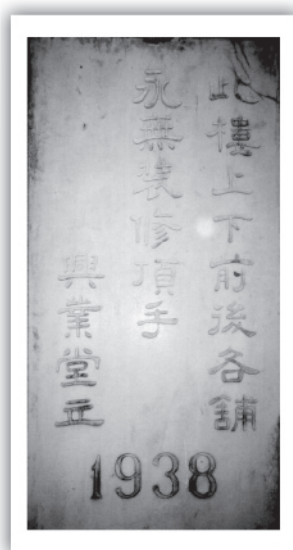 此樓上下前後各舖
永無裝修頂手
興業堂立
1938